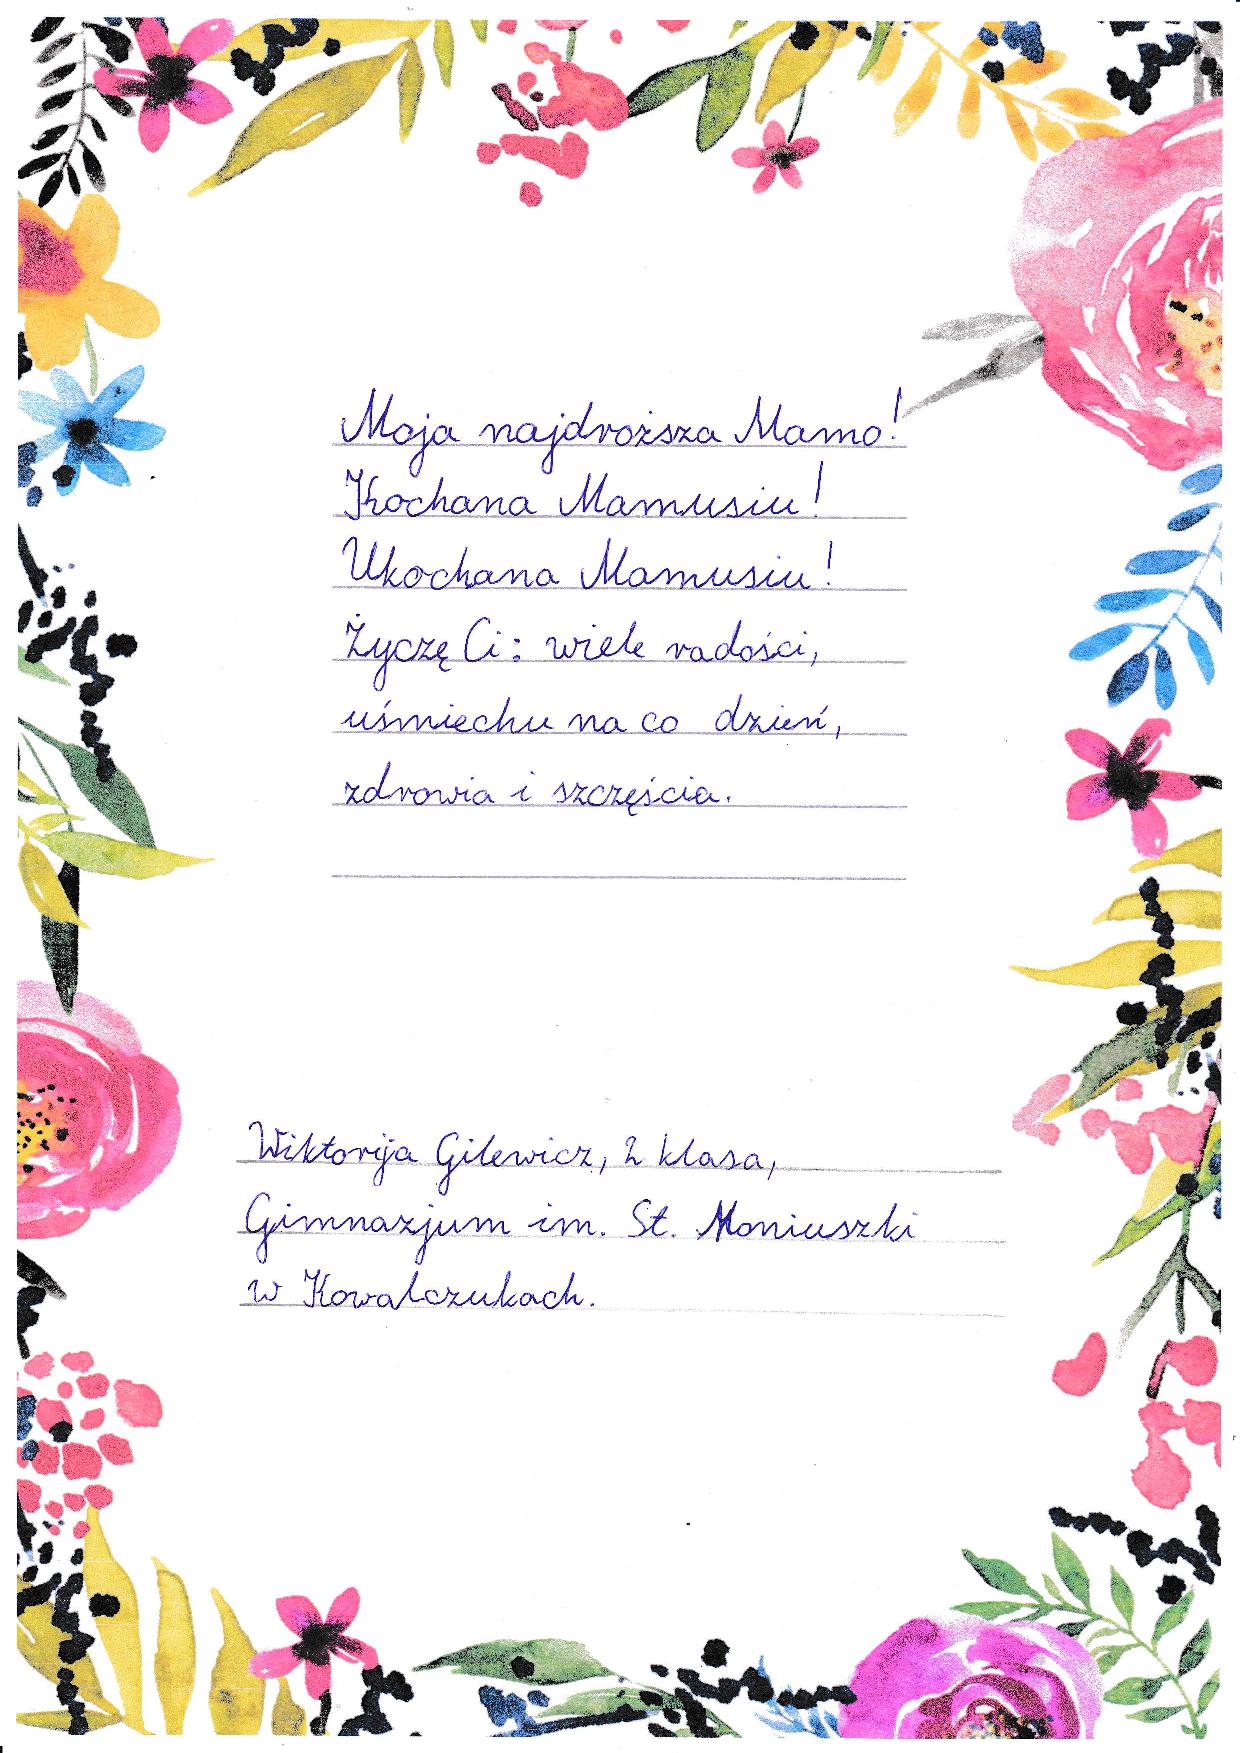 Moja najdroższa Mamo!
Kochana Mamusiu!
Ukochana Mamusiu!
Życzę Ci: wiele radości,
uśmiechu na co dzień,
zdrowia i szczęścia.
Wiktorija Gilewicz, 2 klasa,
Gimnazjum im. St. Moniuszki
w Kowalczukach.